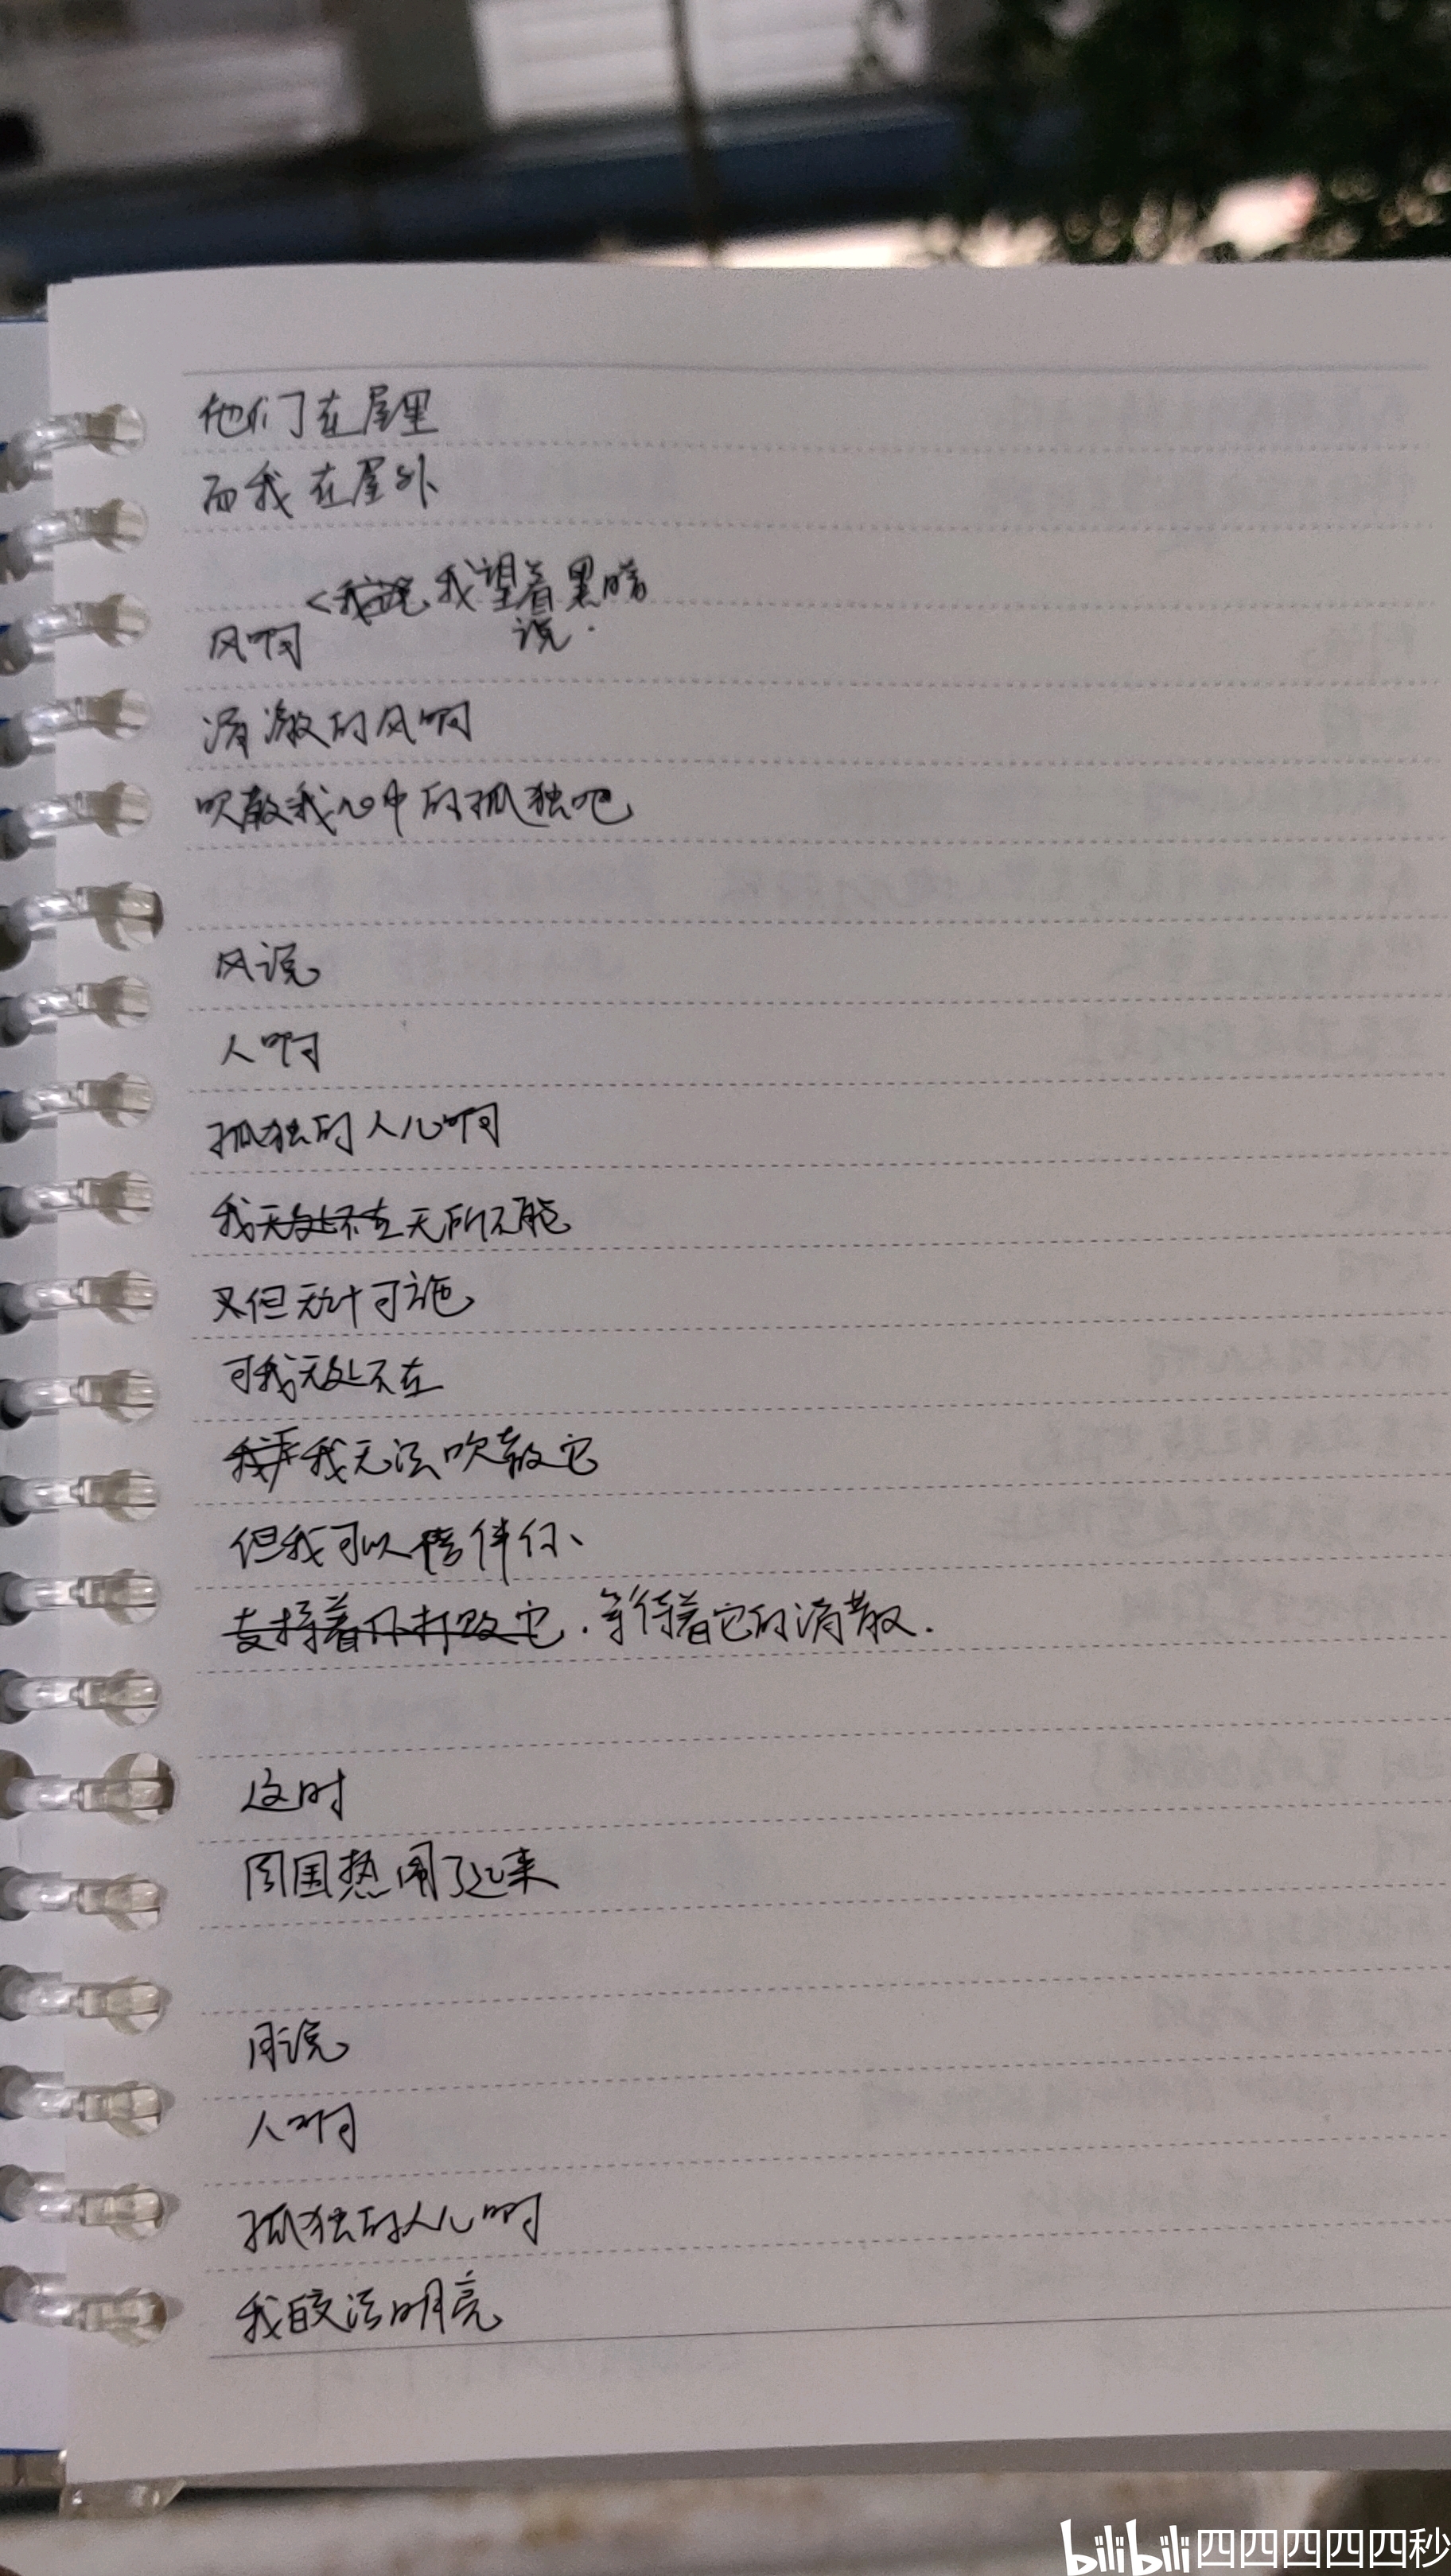 他们在屋里
而我在屋外
<我说 我望着黑暗
说.
风啊
清澈的风啊
吹散我心中的孤独吧
风说
人啊
孤独的人儿啊
我无处不在无所不能
又但无计可施
可我无处不在
我我无法吹散它
但我可以陪伴你、
支持着你打败它.等待着它的消散.
这时
周围热闹了起来
月说
人啊
孤独的人儿啊
我皎洁明亮
bilibili 四四四四四秒